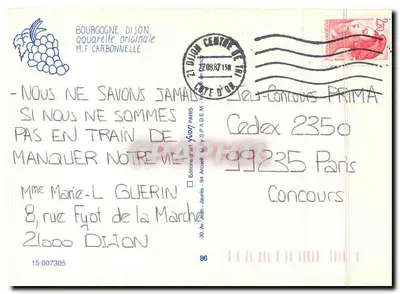 BOURGOGNE DIJON
aquarelle originale
M.F CARBONNELLE
21 DIJON CENTRE DE TRI
CÔTE D'OR
2,20
- NOUS NE SAVONS JAMAIS
SI NOUS NE SOMMES
PAS EN TRAIN DE
MANQUER NOTRE VIE -
Mme Marie-L GUERIN
8, rue Fyot de la Marche
21000 DIJON
15.007305
Editions d'art yvon PARIS
30, Av. Jean-Jaurès - 94 Arcueil
by S.P.A.D.E.M.
86
Jeu-Concours PRIMA
Cedex 2350
99235 Paris
Concours